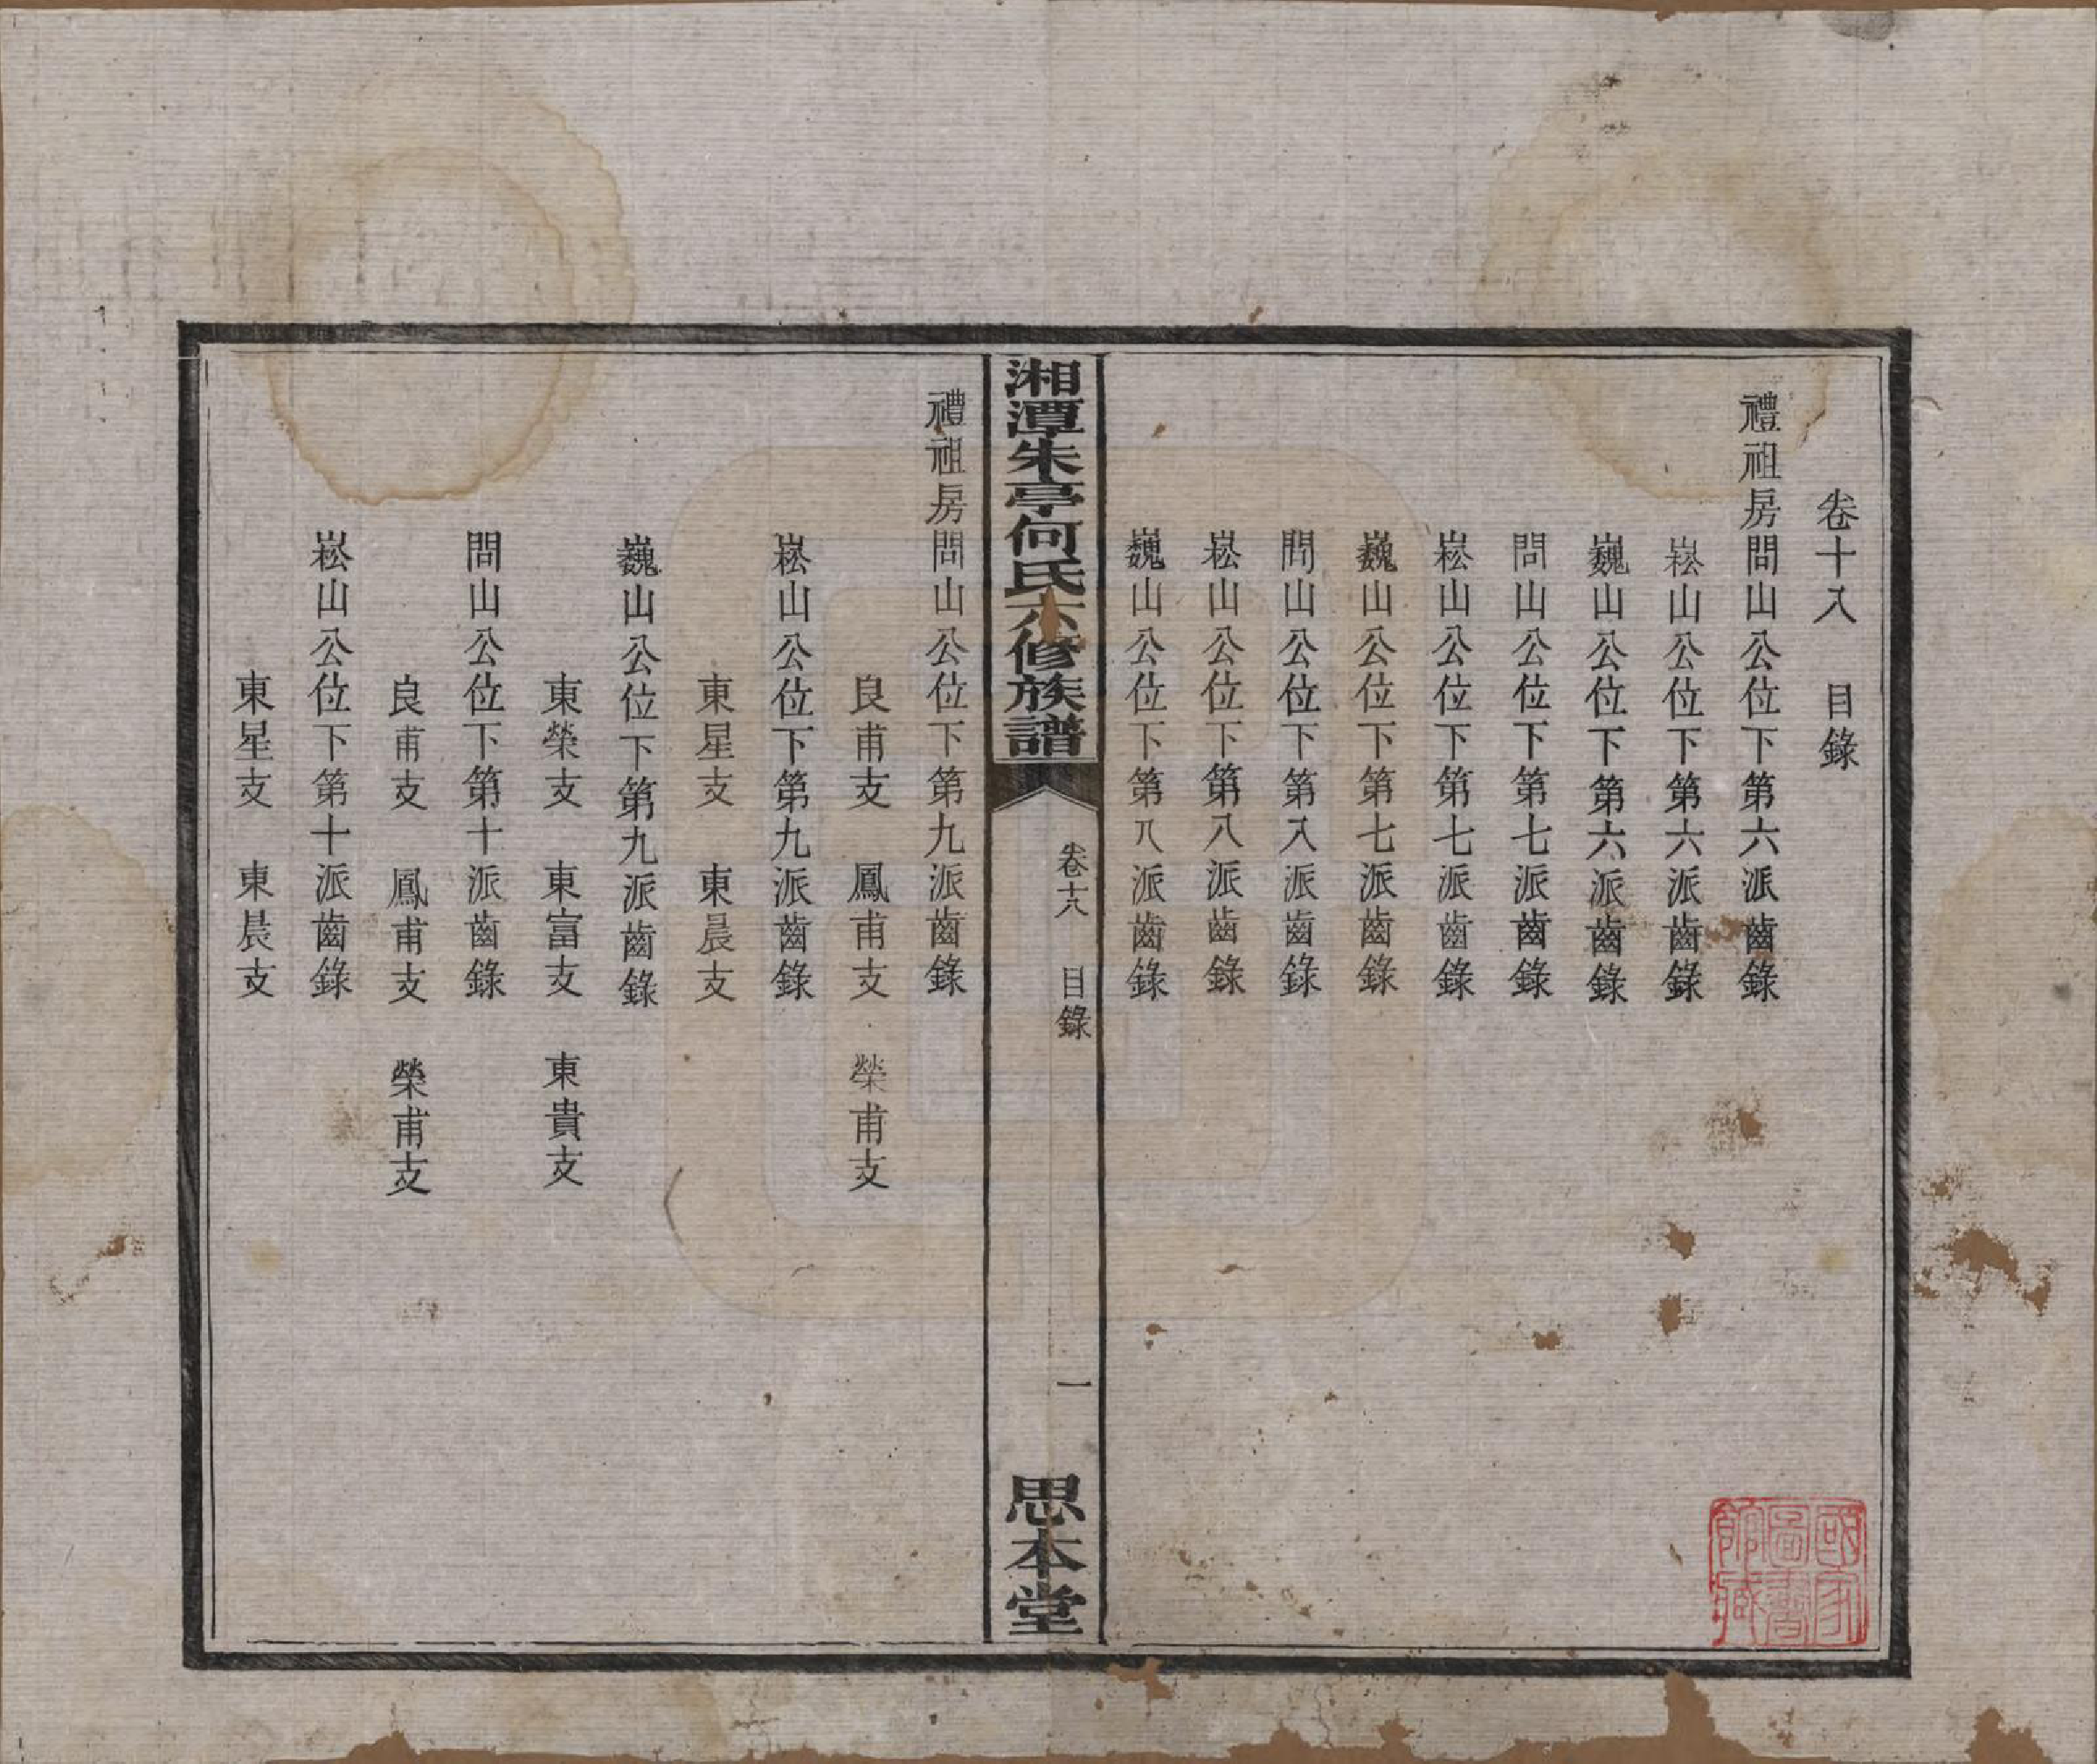 卷十八　目錄
禮祖房問山公位下第六派齒錄
崧山公位下第六派齒錄
巍山公位下第六派齒錄
問山公位下第七派齒錄
崧山公位下第七派齒錄
巍山公位下第七派齒錄
問山公位下第八派齒錄
崧山公位下第八派齒錄
巍山公位下第八派齒錄
湘潭朱亭何氏六修族譜　卷十八　目錄　一　思本堂
禮祖房問山公位下第九派齒錄
良甫支　鳳甫支　榮甫支
崧山公位下第九派齒錄
東星支　東晨支
巍山公位下第九派齒錄
東榮支　東富支　東貴支
問山公位下第十派齒錄
良甫支　鳳甫支　榮甫支
崧山公位下第十派齒錄
東星支　東晨支
國家圖書館藏